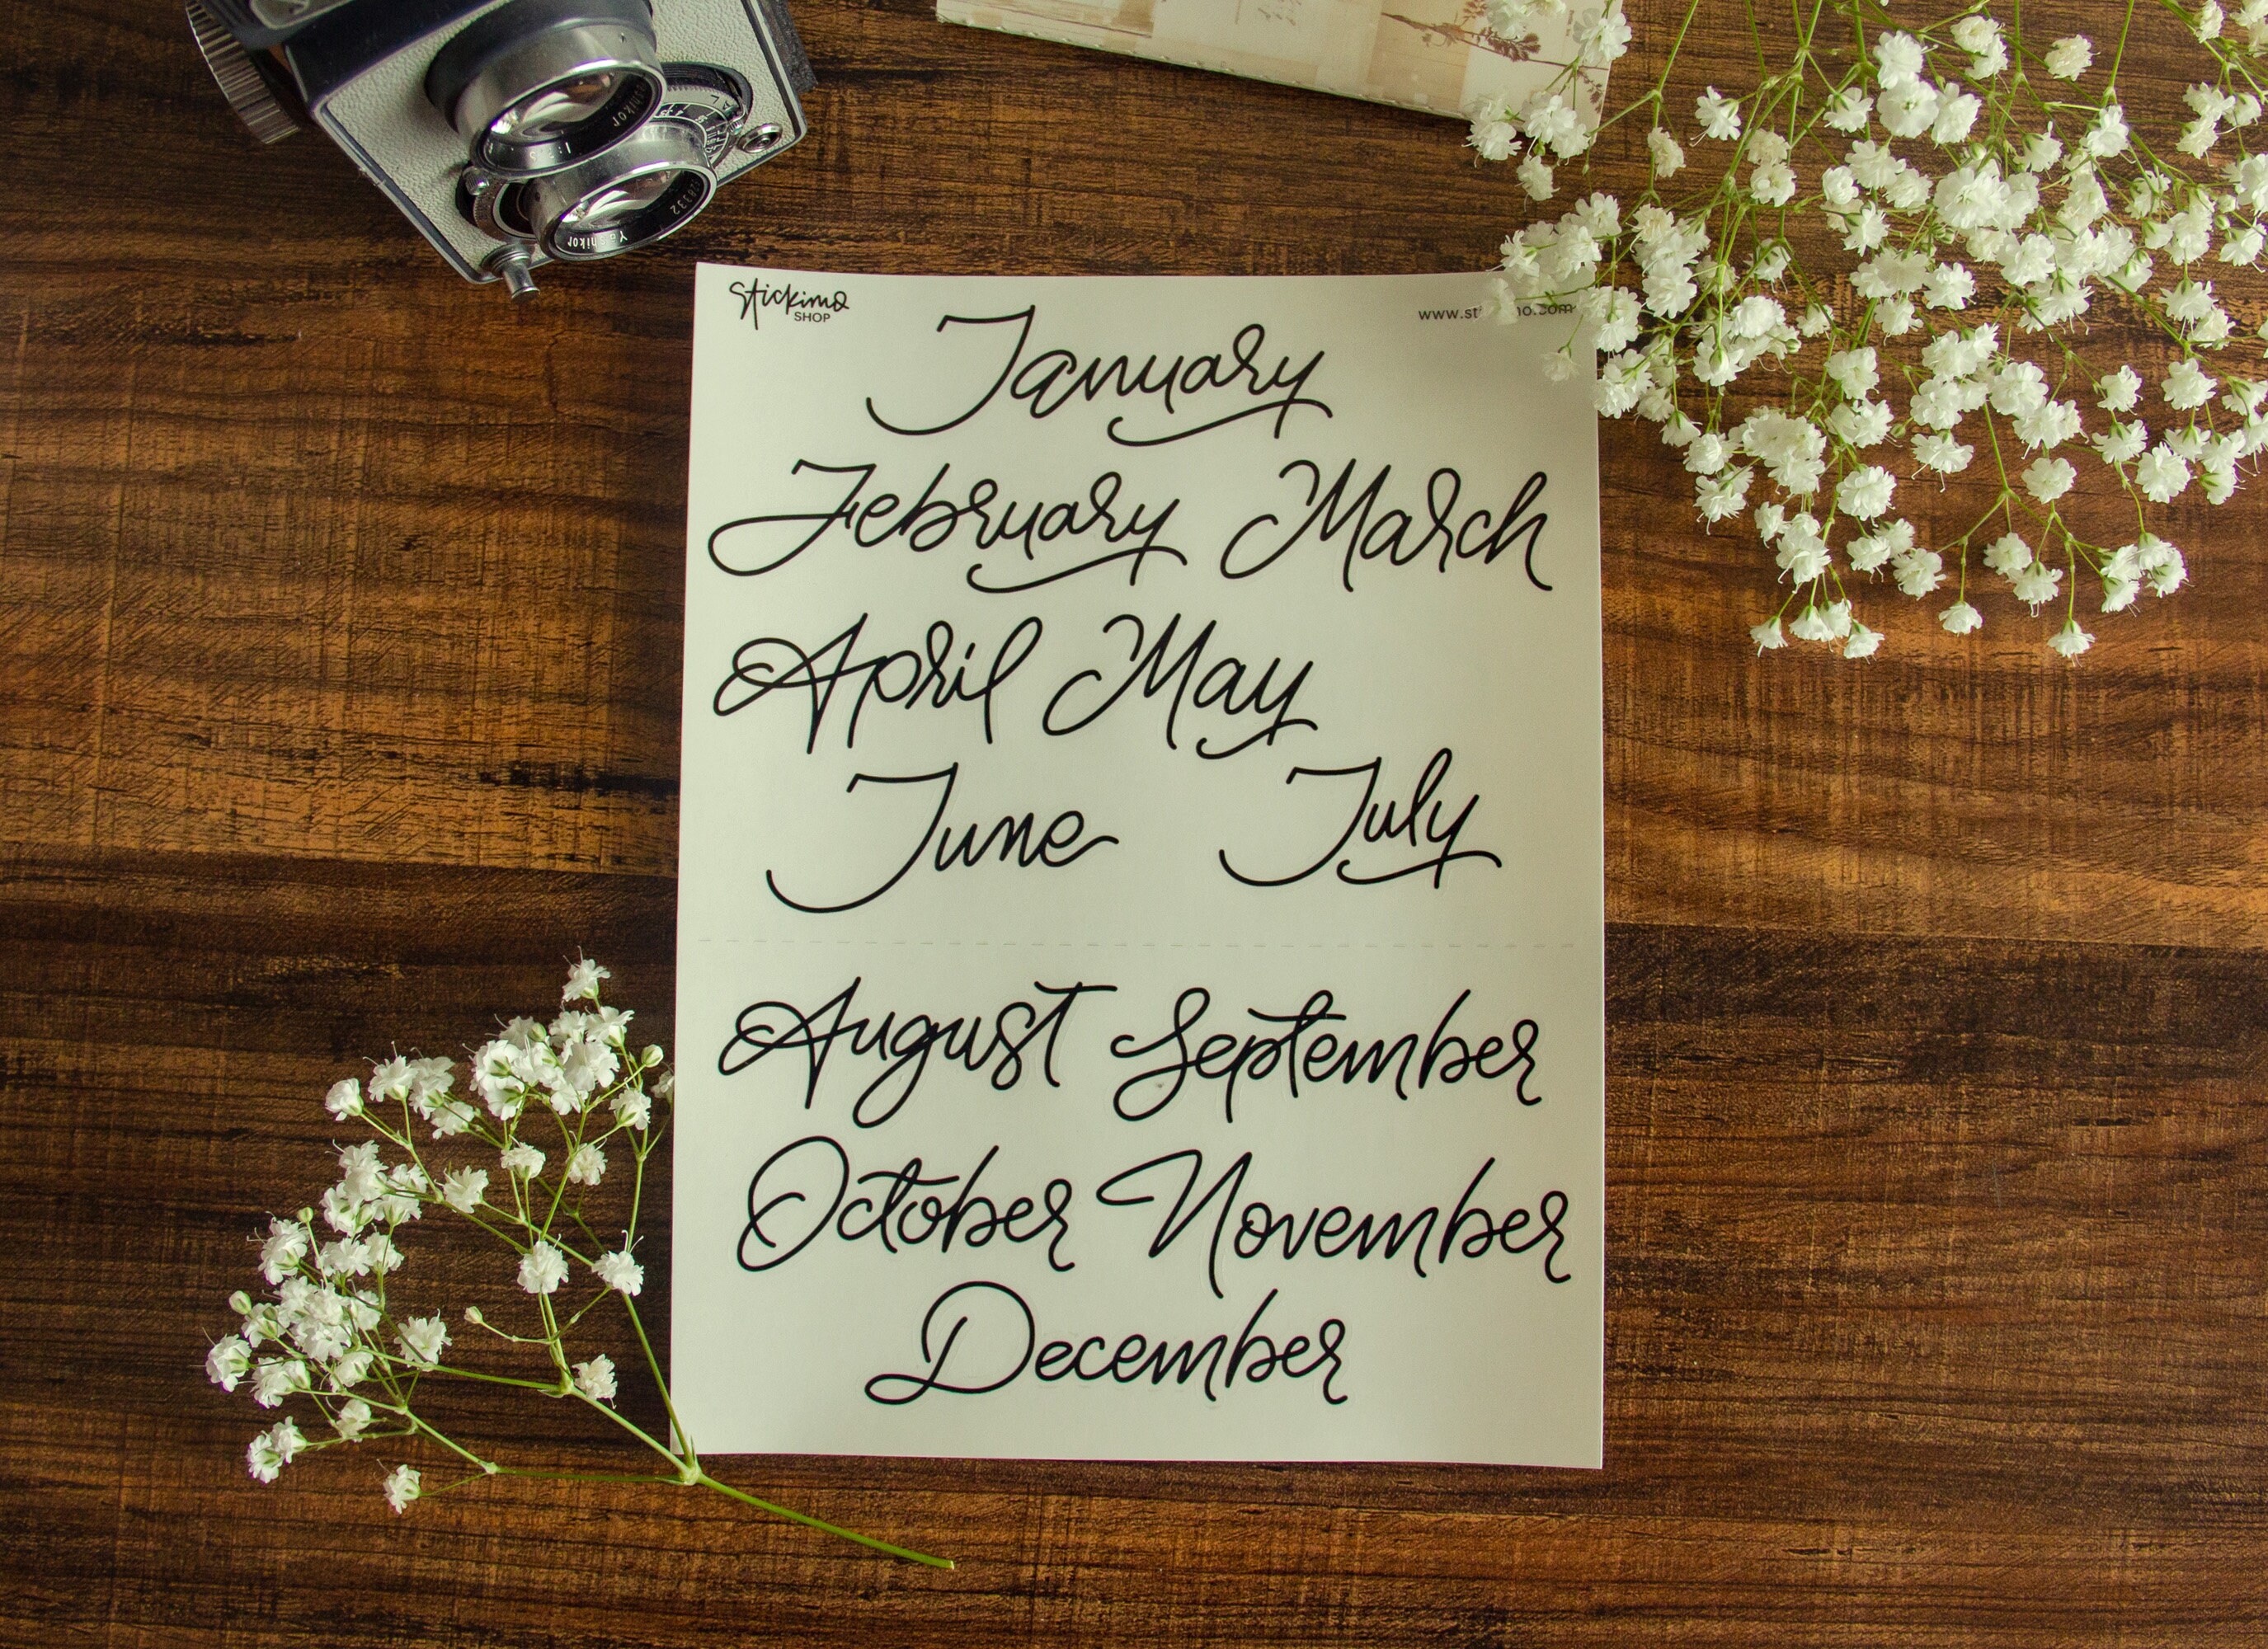 Yashikor
Stickimo
SHOP
January
February March
April May
June July
August September
October November
December